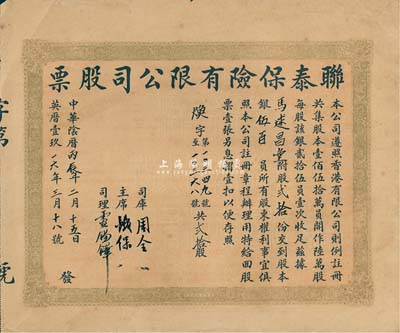 聯泰保險有限公司股票
本公司遵照香港有限公司則例註冊
共集股本壹佰伍拾萬員開作陸萬股
每股該銀貳拾伍員壹次收足茲據
馬述昌翁附股弍拾份交到股本
銀伍百員所有股東權利事宜俱
照本公司註冊章程辦理用特給回股
票壹張另息摺壹扣以便存照
煥字第一二四九號
至一二六八號共弍拾股
司庫周
主席保
司理
中華陰曆丙辰年二月十五日
英曆壹玖一六年三月十八號
發
字第
號